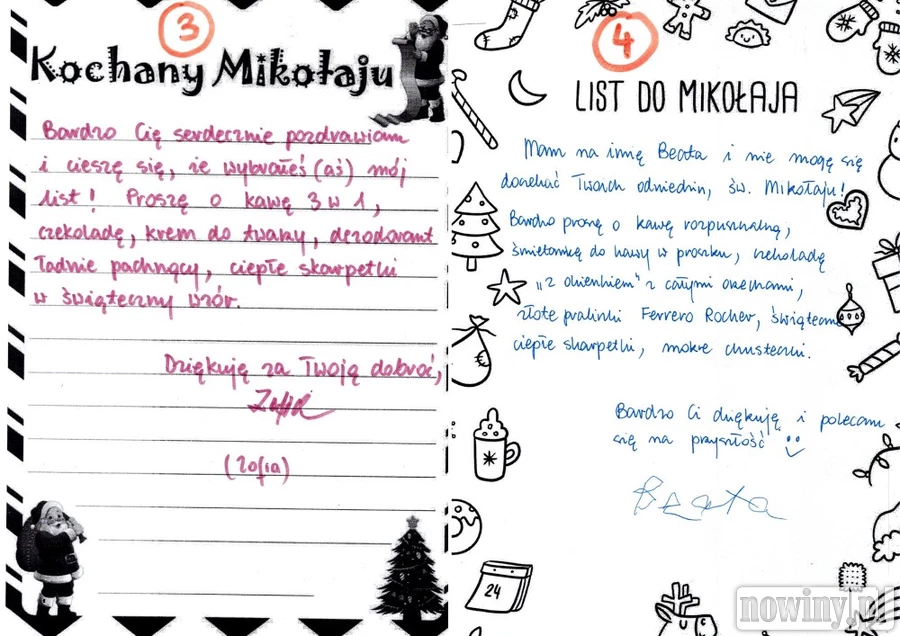 3
Kochany Mikołaju
Bardzo Cię serdecznie pozdrawiam
i cieszę się, że wybrałeś (aś) mój
list! Proszę o kawę 3 w 1,
czekoladę, krem do twarzy, dezodorant
ładnie pachnący, ciepłe skarpetki
w świąteczny wzór.
Dziękuję za Twoją dobroć,
Zofia
(Zofia)
4
LIST DO MIKOŁAJA
Mam na imię Beata i nie mogę się
doczekać Twoich odwiedzin, św. Mikołaju!
Bardzo proszę o kawę rozpuszczalną,
śmietankę do kawy w proszku, czekoladę
„z okienkiem" z całymi orzechami,
złote pralinki Ferrero Rocher, świąteczne
ciepłe skarpetki, mokre chusteczki.
Bardzo Ci dziękuję i polecam
się na przyszłość
Beata
24
nowiny.pl